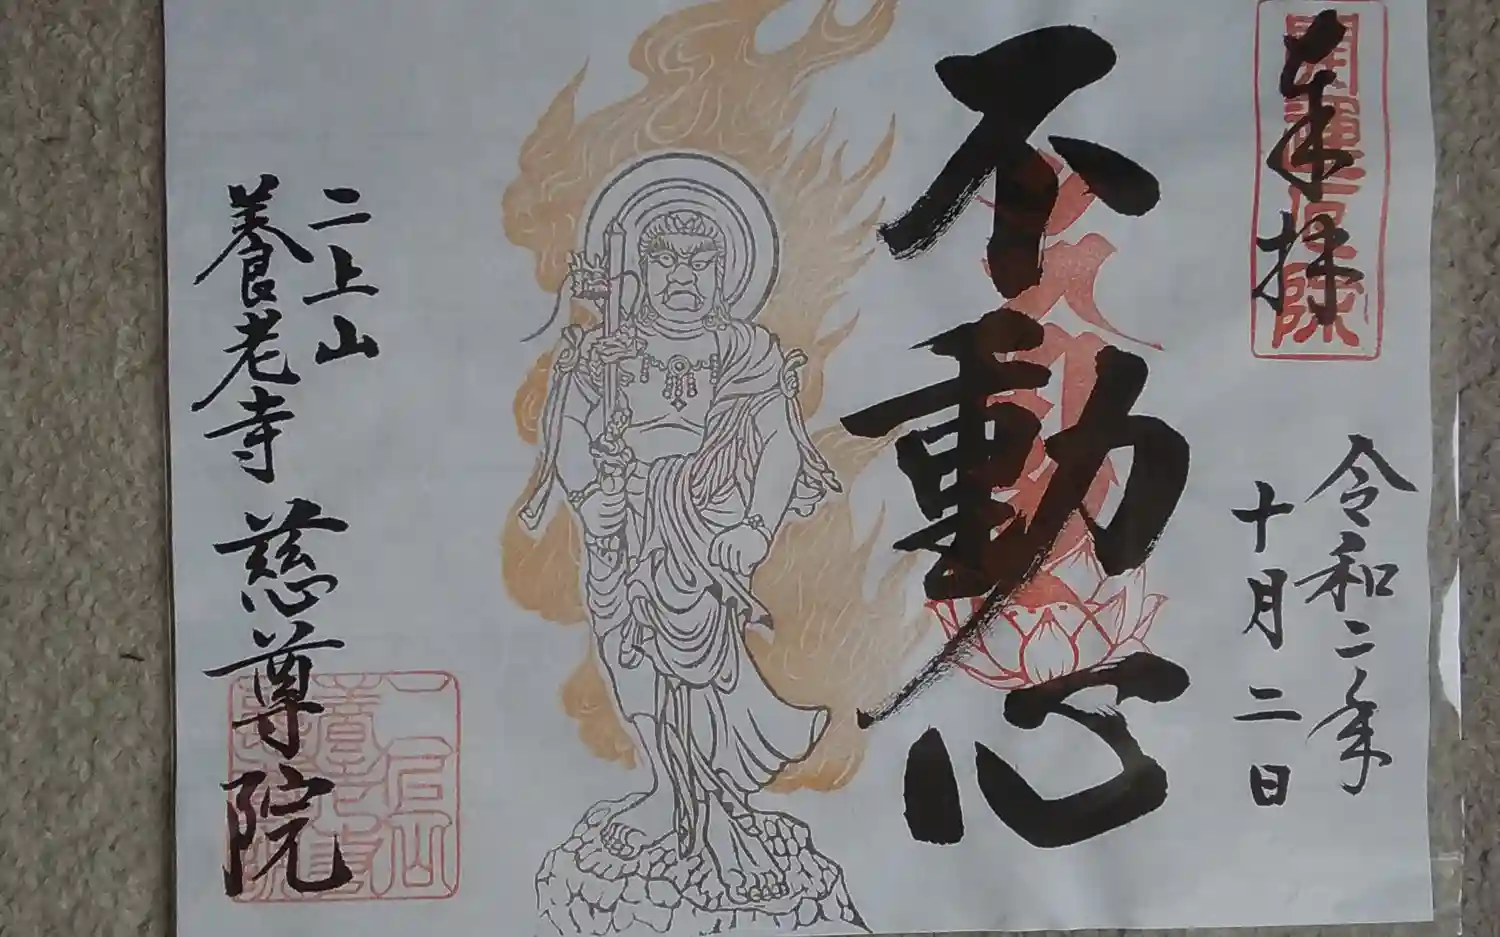 奉拝
開運厄除
令和二年
十月二日
不動心
二上山
養老寺 慈尊院